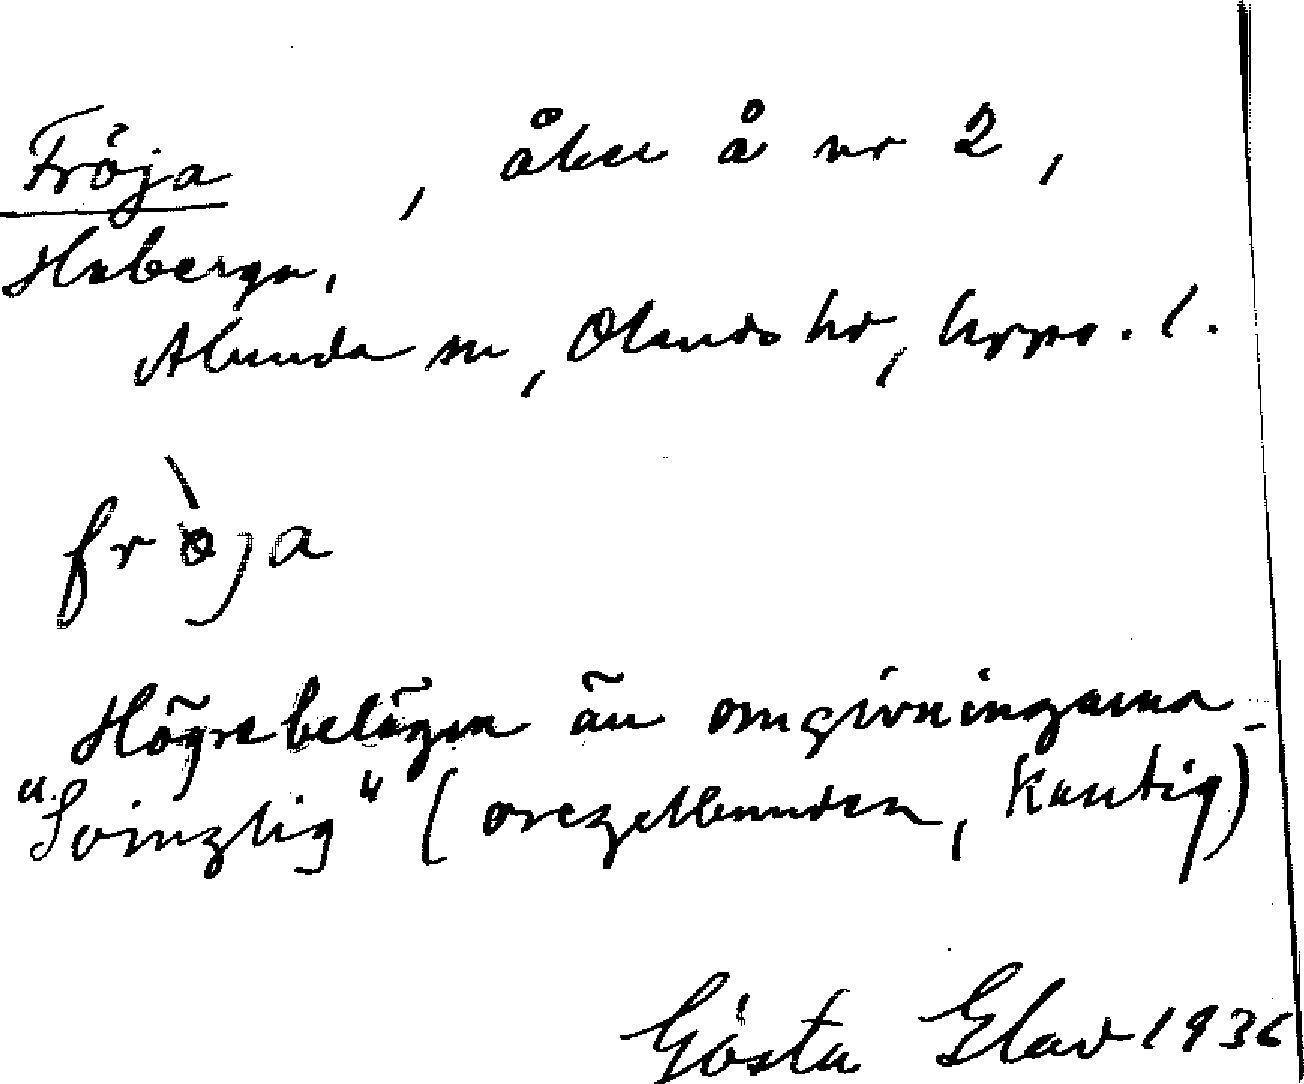 Fröja, åker å nr 2,
Haberga,
Alunda sn, Olands hd, Upps. l.
frò̀ja
Högre belägen än omgivningarna
"Svinglig" (oregelbunden, kantig)
Gösta Elav 1936